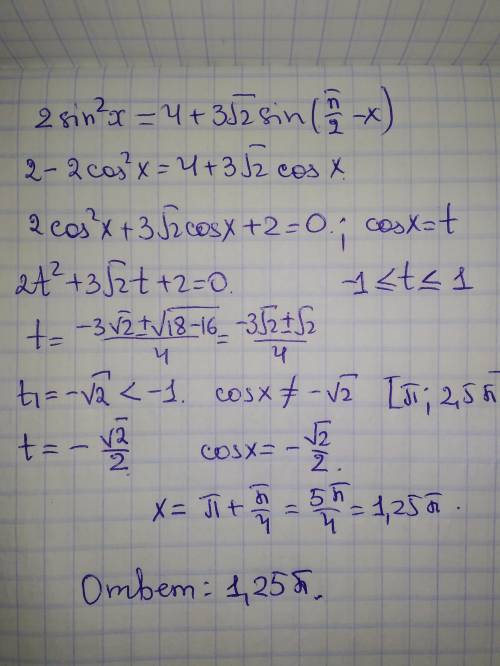 2 sin²x = 4 + 3√2 sin(π/2 - x)
2 - 2cos²x = 4 + 3√2 cos x.
2cos²x + 3√2 cosx + 2 = 0. ; cosx = t
2t² + 3√2 t + 2 = 0. -1 ≤ t ≤ 1
t = (-3√2 ± √(18-16))/4 = (-3√2 ± √2)/4
t₁ = -√2 < -1. cosx ≠ -√2 [π; 2,5π
t = - √2/2. cosx = - √2/2.
x = π + π/4 = 5π/4 = 1,25π.
Ответ: 1,25π.